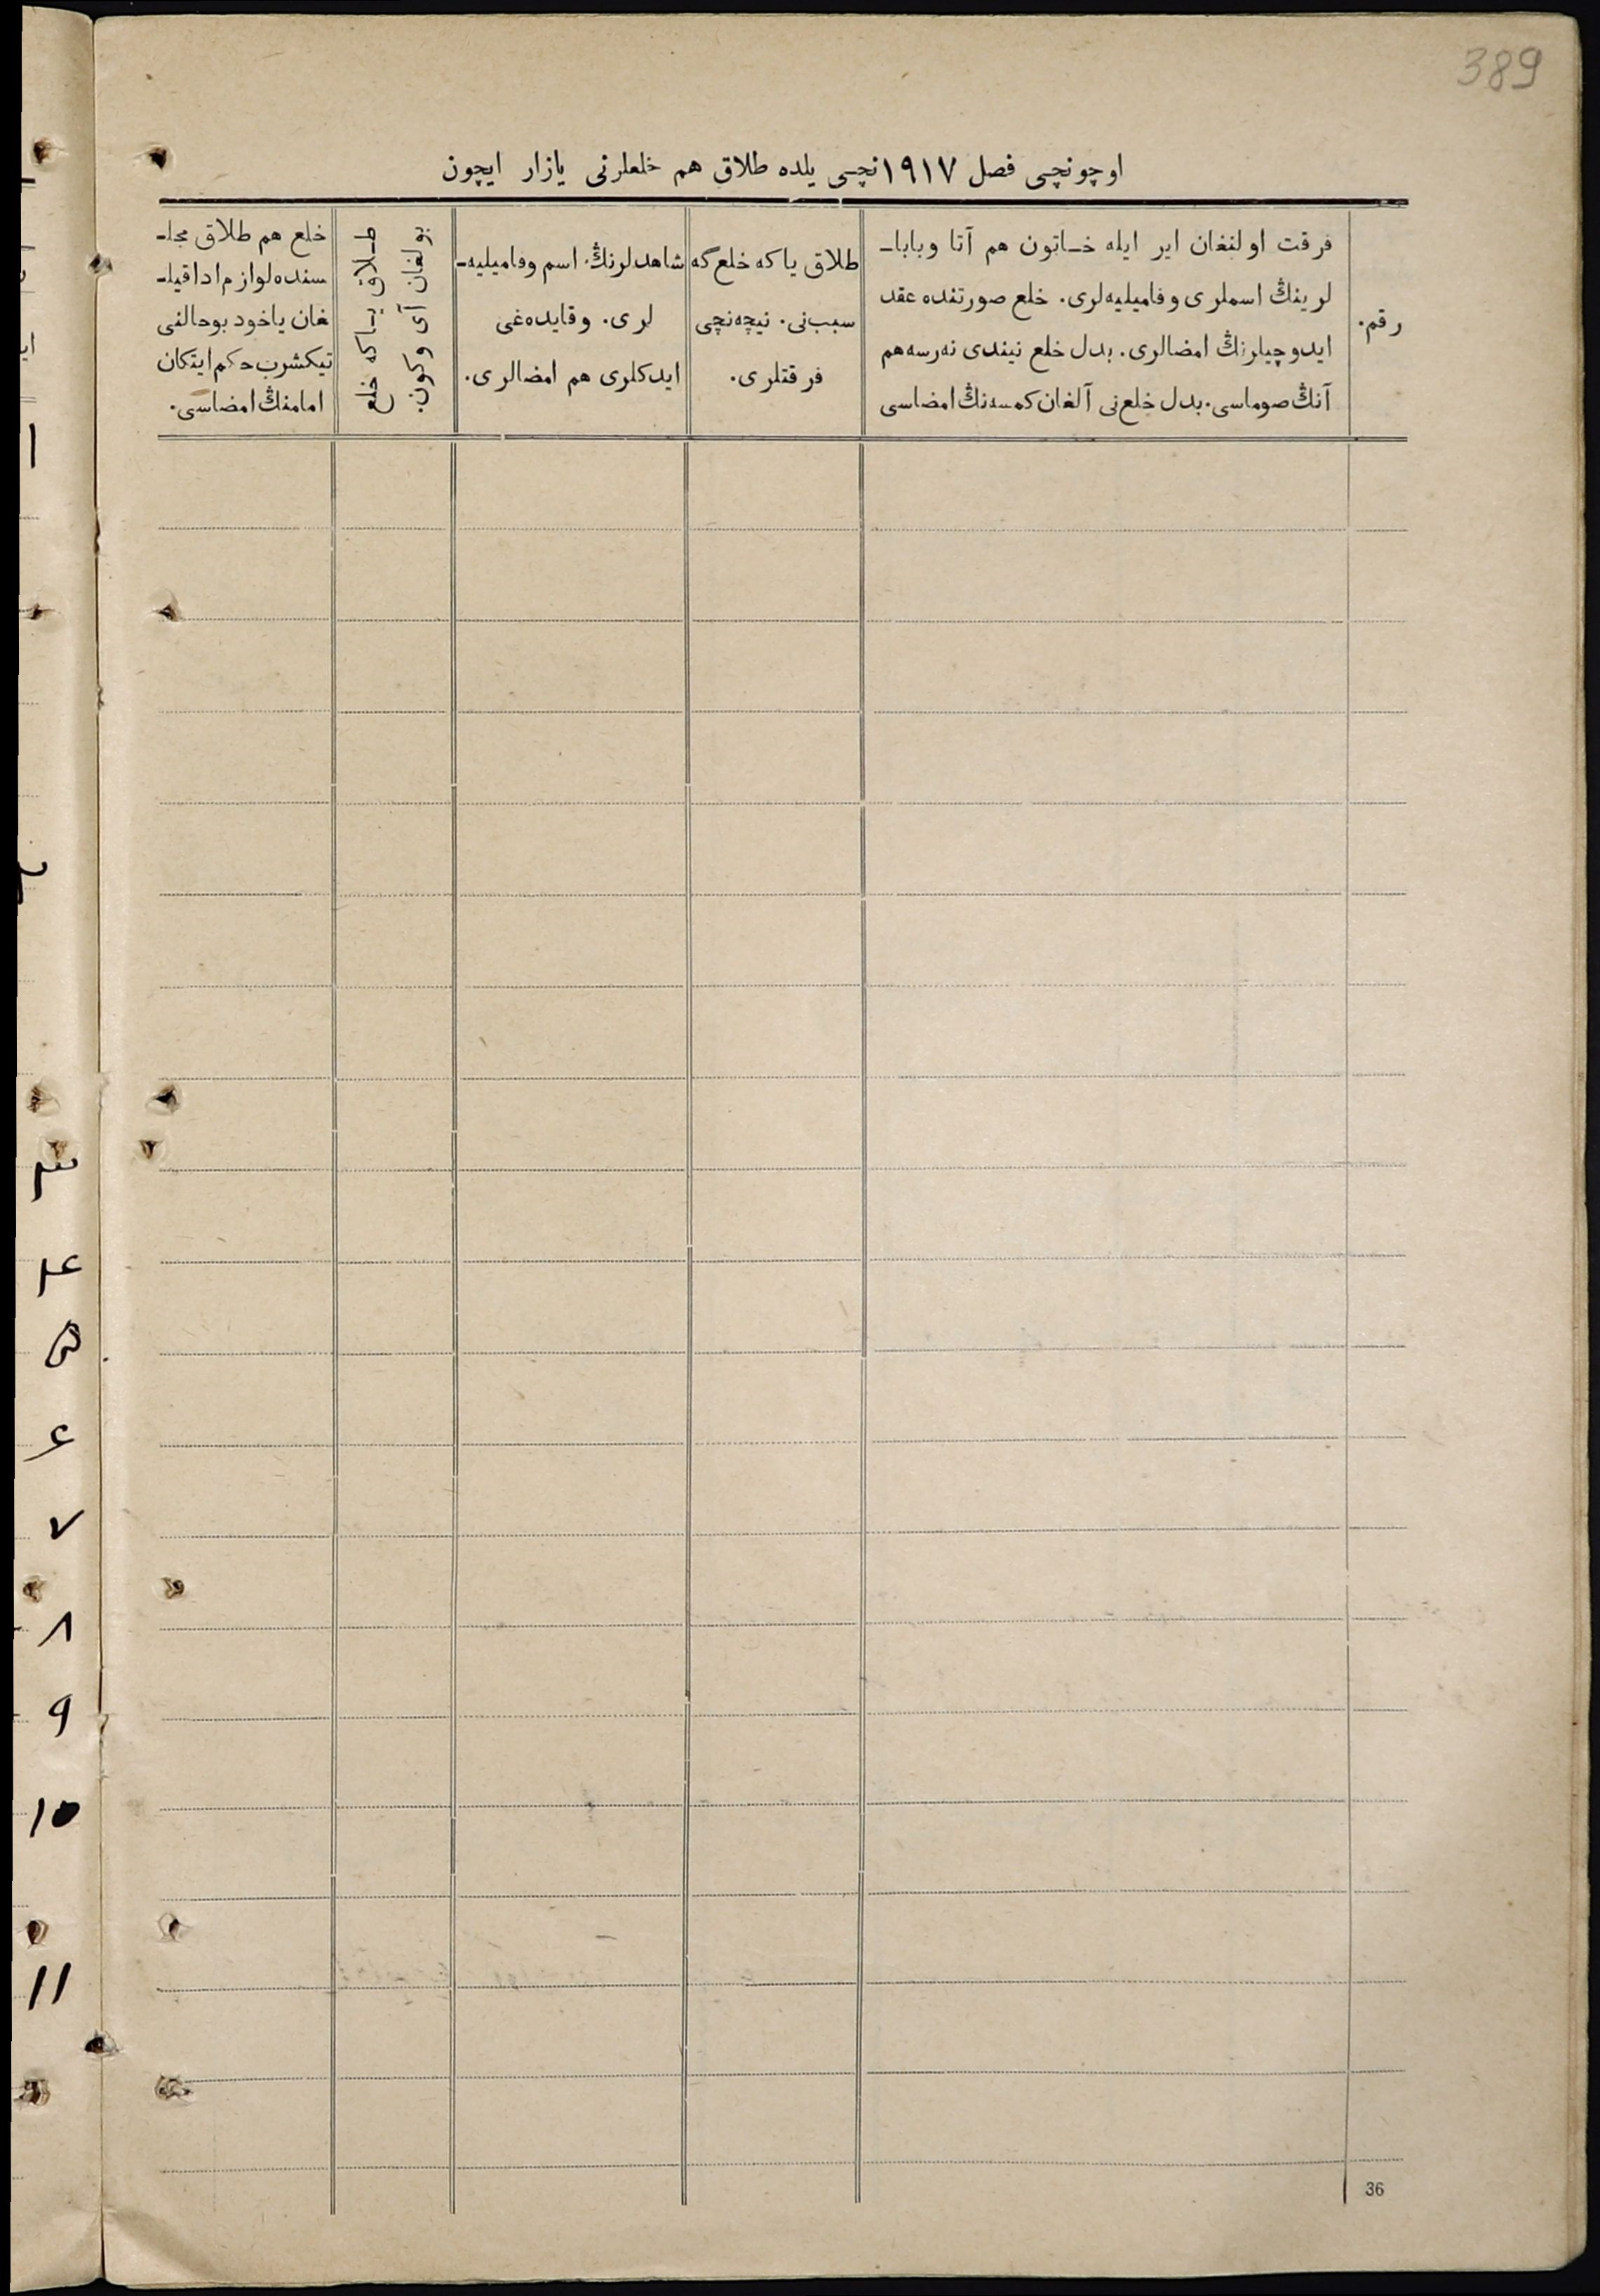 389
اوچونچی فصل ۱۹۱۷نچی یلده طلاق هم خلعلرنی یازار ایچون
رقم.
فرقت اولنغان ایر ایله خاتون هم آتا وبابا-
لرینڭ اسملری وفامیلیه‌لری. خلع صورتنده عقد
ایدوچیلرنڭ امضالری. بدل خلع نیندی نه‌رسه هم
آنڭ صوماسی. بدل خلع‌نی آلغان کمسه‌نڭ امضاسی
طلاق یا که خلع گه
سبب‌نی. نیچه‌نچی
فرقتلری.
شاهدلرنڭ اسم وفامیلیه-
لری. وقایده‌غی
ایدکلری هم امضالری.
طلاق یا که خلع
بولغان آی وکون.
خلع هم طلاق مجلـ
سنده لوازم ادا قیلـ
غان یاخود بوحالنی
تیکشرب حکم ایتکان
امامنڭ امضاسی.
۱
۳
۴
۵
۶
۷
۸
۹
۱۰
۱۱
36